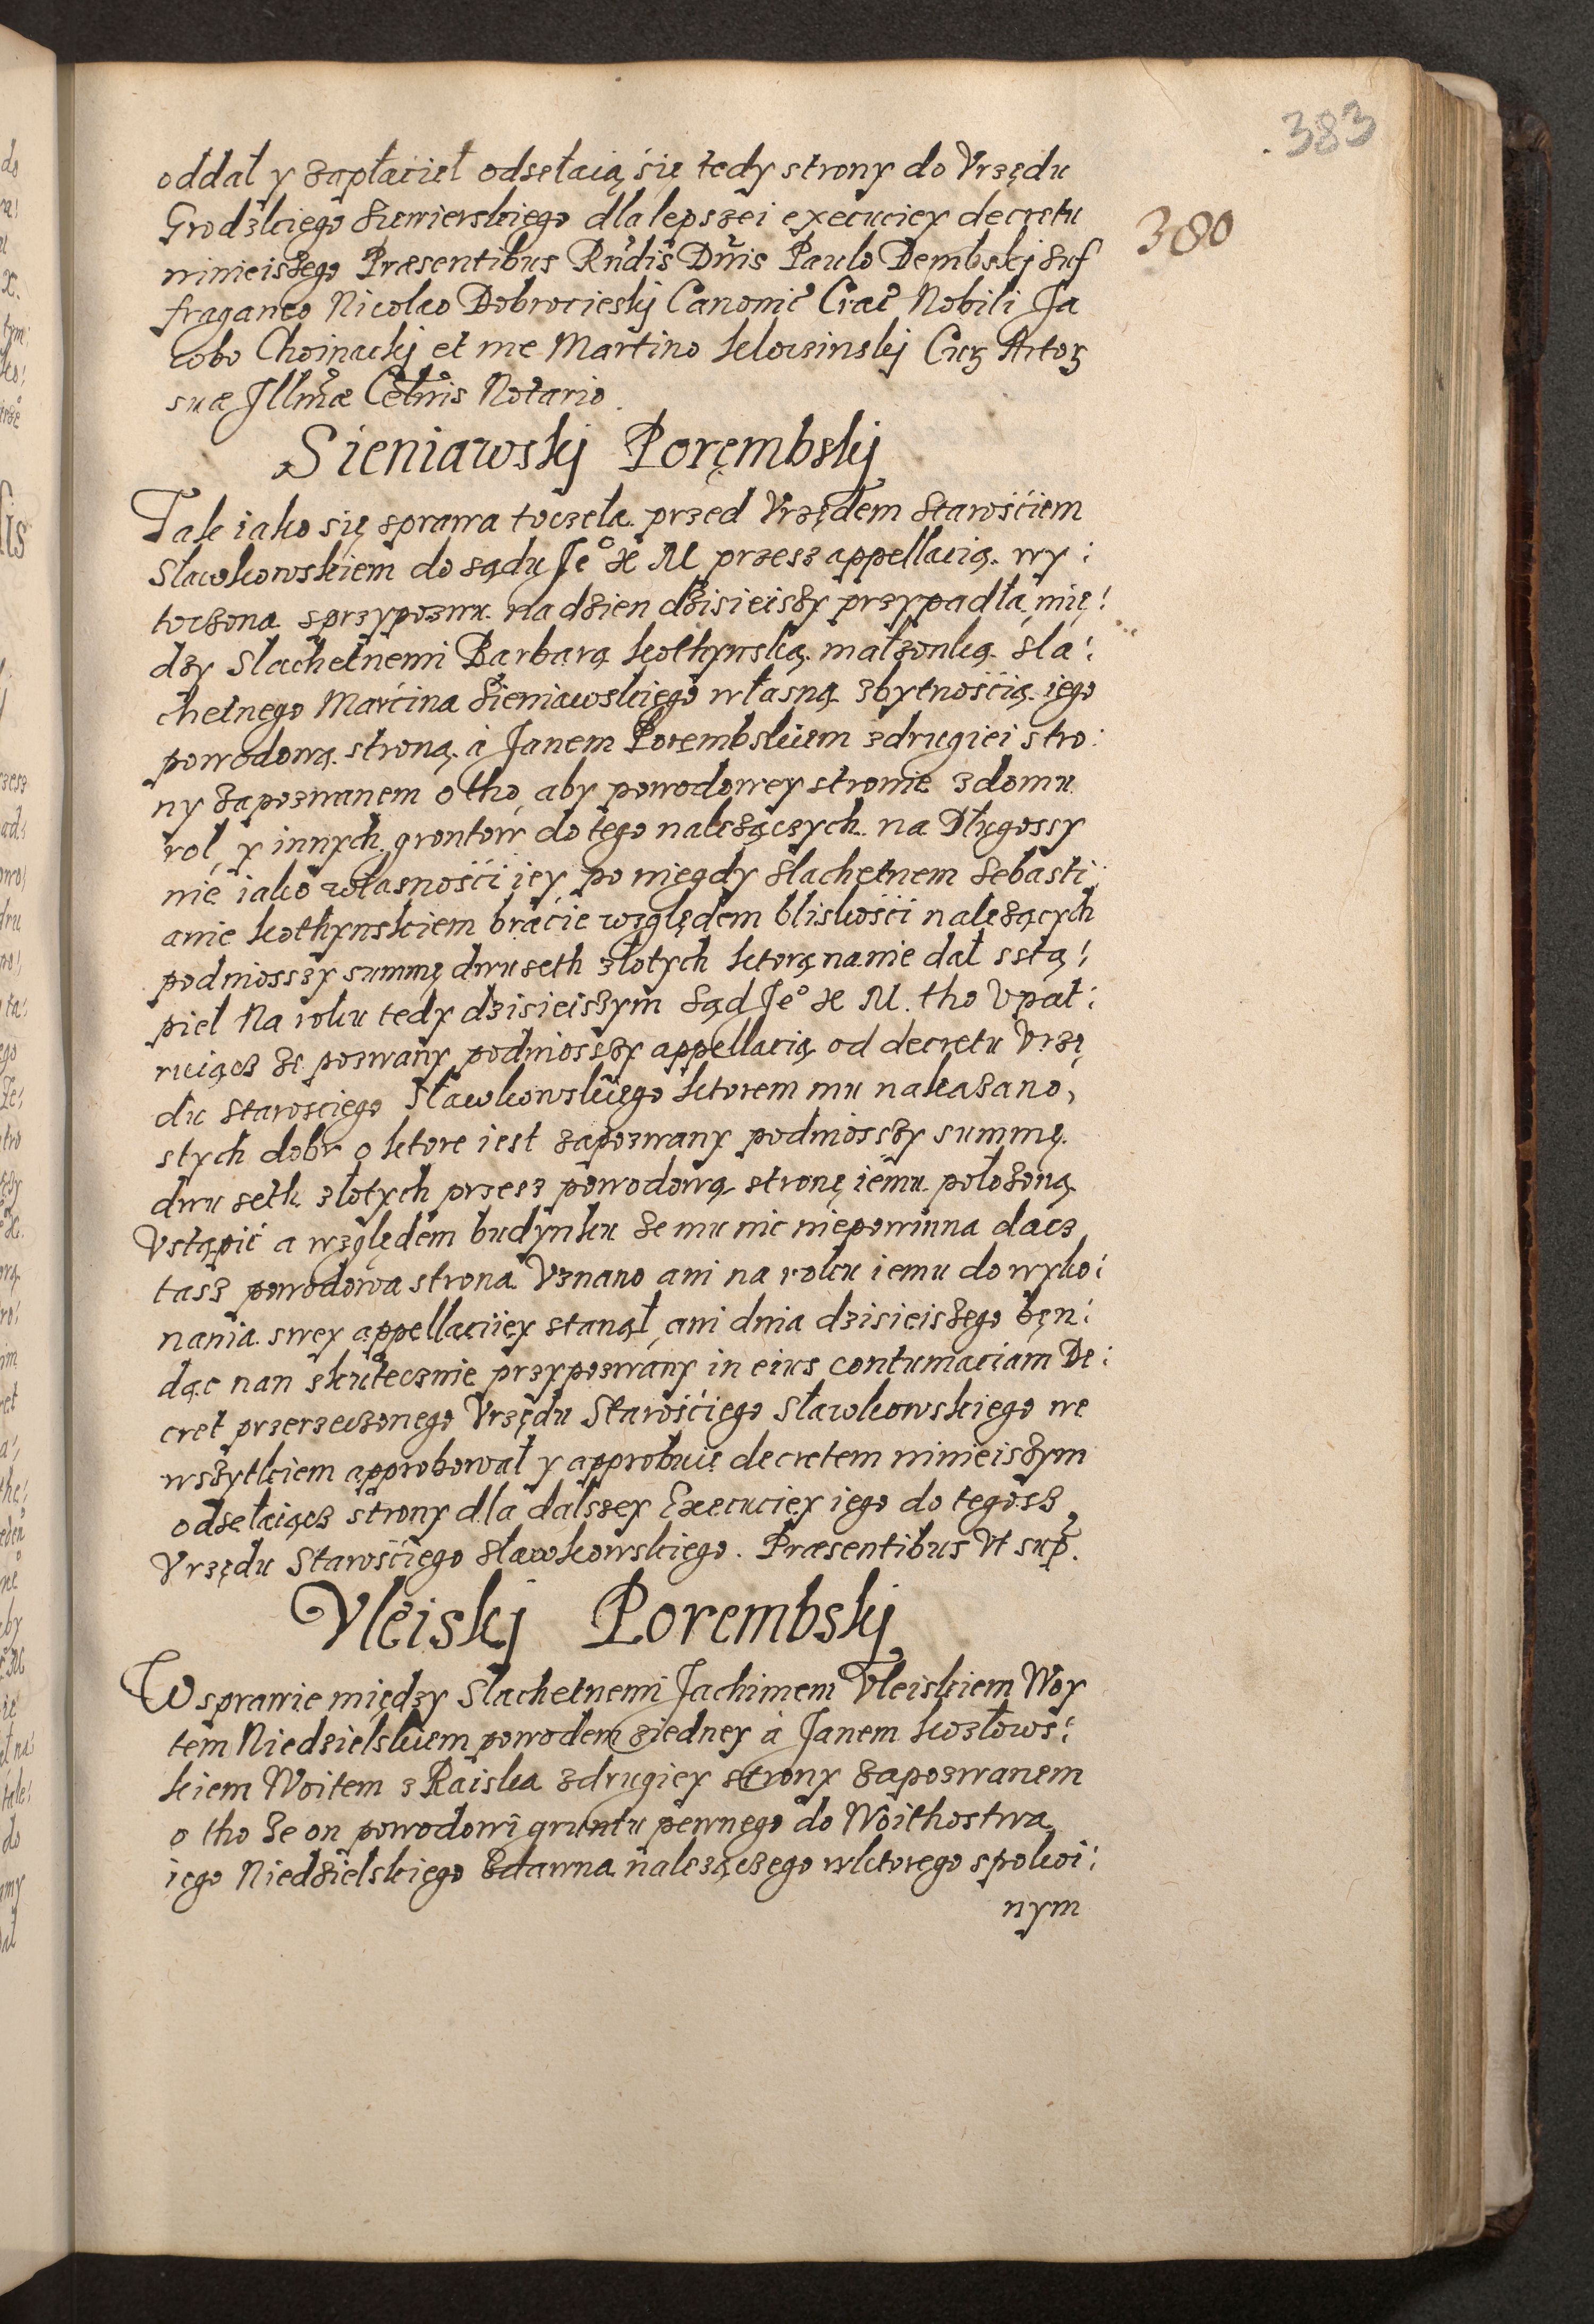 383
380
oddał y zapłacieł odsełaią się tedy strony do Vrzędu
Grodzkiego Siewierskiego dla lepszei execuciey decretu
ninieiszego Præsentibus Rndis Dnis Paulo Dembskj Suf
fraganeo Nicolao Dobrocieskj Canonic Crac Nobili Ja
cobo Choinackj et me Martino Kloczinskj Curz Actorz
suæ Jllmæ Celtnis Notario.
Sieniawskj Poręmbskj
Tak iako się sprawa toczeła przed Vrzędem Starościem
Sławkowskiem do sądu Je° X M przesz appellacią wy:
toczona sprzypozwu na dzien dzisieiszy przypadła mię:
dzy Slachetnemi Barbarą Kothynską małzonką Sla:
chetnego Marcina Sieniawskiego własną zbytnoscią iego
powodową stroną à Janem Porembskiem zdrugiei stro:
ny zapozwanem o tho aby powodowey stronie zdomu
rol, y innych grontow do tego nalezączych na Długossy
nie iako własnosci iey po niegdy slachetnem Sebasti:
anie Kothynskiem bracie względem bliskości nalezących
podniosszy summę dwu seth złotych ktorą na nie dał sstą:
pieł Na roku tedy dzisieiszym Sąd Je° X M. tho Vpat:
ruiącz ze pozwany podniosszy appellacią od decretu Vrzę
du Starosciego Sławkowskiego ktorem mu nakazano,
stych dobr o ktore iest zapozwany podniosszy summę
dwu seth złotych przesz powodową stronę iemu połozoną
Vstąpić a względem budynku ze mu nic niepowinna dacz
tasz powodowa strona Vznano ani na roku iemu do wyko:
nania swey appellaciiey stanął, ani dnia dzisieiszego bęn:
dąc nan skutecznie przypozwány in eius contumaciam De:
cret przerzeczonego Vrzędu Starościego Sławkowskiego we
wszytkiem approbował y approbuie decretem ninieiszym
odsełaiącz strony dla dalszey Execuciey iego do tegosz
Vrzędu Starościego Sławkowskiego. Præsentibus Vt sup.
Vleiskj Porembskj
W sprawie między Slachetnemi Jachimem Vleiskiem Woy
tem Niedzielskiem powodem ziedney à Janem Kozłows:
kiem Woitem z Raiska zdrugiey strony zapozwanem
o tho ze on powodowi gruntu pewnego do Woithostwa
iego Niedzielskiego zdawna nalezączego wktorego spokoi:
nym